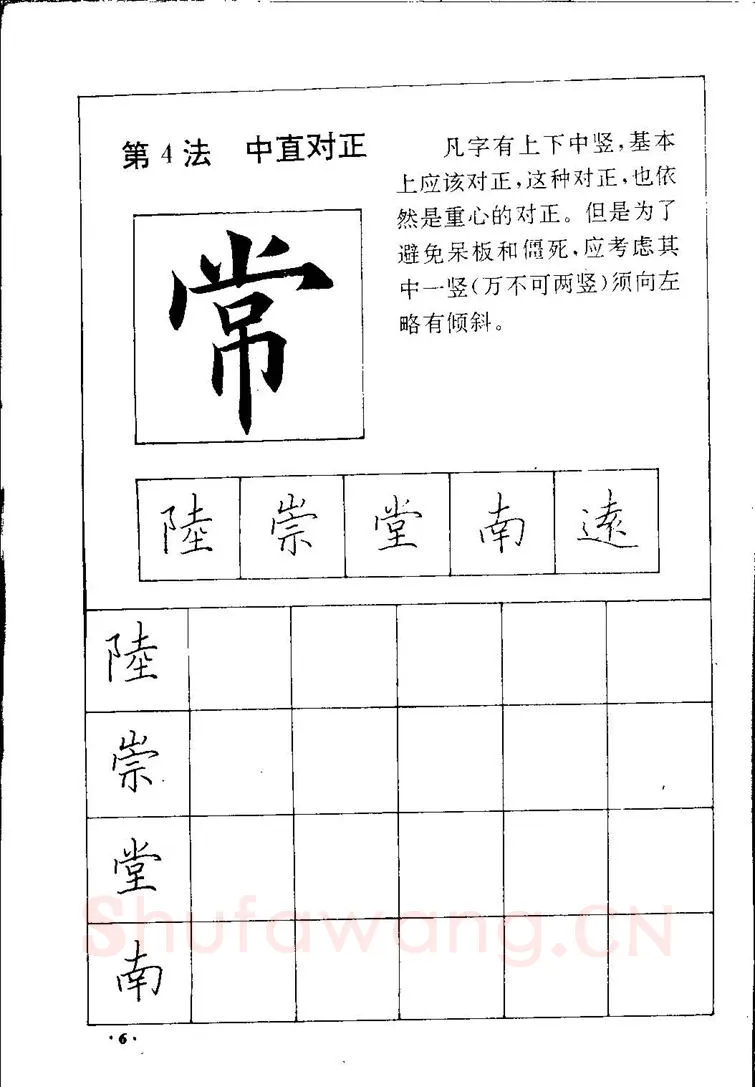 第4法 中直对正
常
凡字有上下中竖，基本
上应该对正，这种对正，也依
然是重心的对正。但是为了
避免呆板和僵死，应考虑其
中一竖(万不可两竖)须向左
略有倾斜。
陸 崇 堂 南 遠
陸
崇
堂
南
Shufawang.CN
·6·